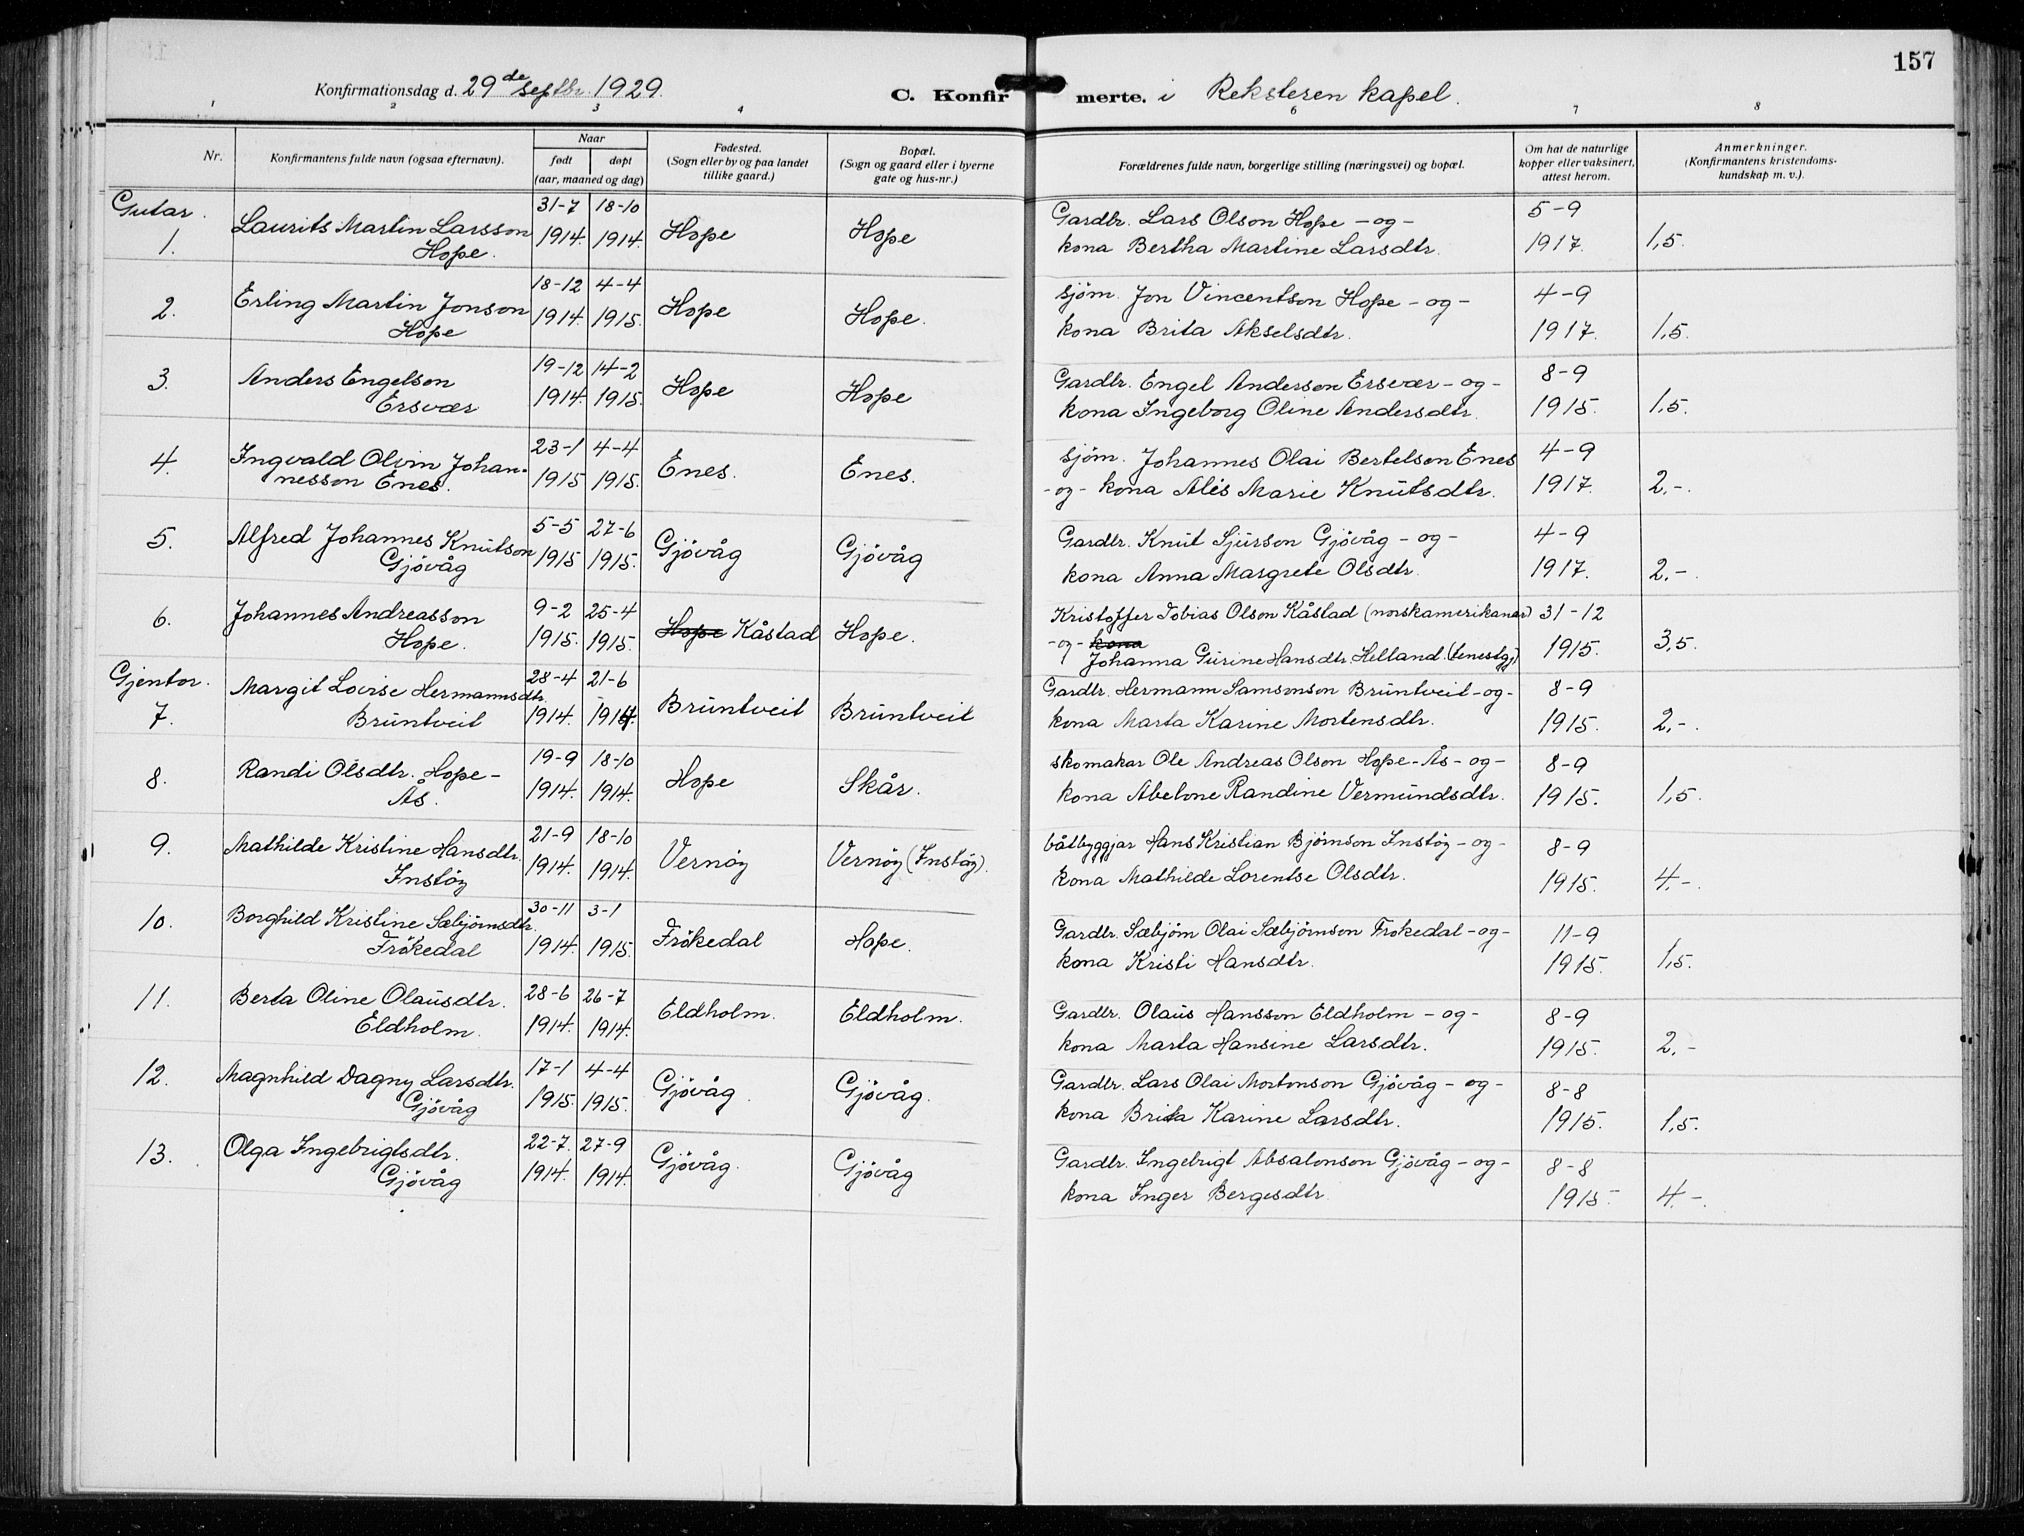 157
Konfirmationsdag d. 29de septbr. 1929.
C. Konfirmerte. i Reksteren kapel.
1 2 3 4 6 7 8
Nr.
Konfirmantens fulde navn (ogsaa efternavn).
Naar
født døpt
(aar, maaned og dag)
Fødested.
(Sogn eller by og paa landet
tillike gaard.)
Bopæl.
(Sogn og gaard eller i byerne
gate og hus-nr.)
Forældrenes fulde navn, borgerlige stilling (næringsvei) og bopæl.
Om hat de naturlige
kopper eller vaksinert,
attest herom.
Anmerkninger.
(Konfirmantens kristendoms-
kundskap m. v.).
Gutar.
31-7 18-10 Gardbr. Lars Olson Hope - og - 5-9
1. Laurits Martin Larsson 1914. 1914. Hope Hope kona Bertha Martine Larsdtr. 1917. 1,5.
Hope.
18-12 4-4 sjøm. Jon Vincentson Hope - og - 4-9
2. Erling Martin Jonson 1914. 1915. Hope Hope. kona Brita Akselsdtr. 1917. 1,5.
Hope
19-12 14-2 Gardbr. Engel Anderson Ersvær - og - 8-9
3. Anders Engelson 1914. 1915. Hope Hope kona Ingeborg Oline Andersdtr. 1915. 1,5.
Ersvær
23-1 4-4 sjøm. Johannes Olai Bertelson Enes 4-9
4. Ingvald Olvin Johan- 1915 1915. Enes. Enes. - og - kona Alis Marie Knutsdtr. 1917. 2,-.
nesson Enes.
5-5 27-6 Gardbr. Knut Sjurson Gjövåg - og - 4-9
5. Alfred Johannes Knutson 1915 1915. Gjövåg Gjövåg kona Anna Margrete Olsdtr. 1917. 2,-.
Gjövåg
9-2 25-4 Kristoffer Tobias Olson Kåstad (norskamerikanar) 31-12
6. Johannes Andreasson 1915. 1915. Hope Kåstad Hope. - og - kona
Hope. Johanna Gurine Hansdtr. Helland. (tenestgj) 1915. 3,5.
Gjentor.
28-4 21-6 Gardbr. Hermann Samsonson Bruntveit - og - 8-9
7. Margit Lovise Hermannsdtr. 1914. 1914. Bruntveit Bruntveit kona Marta Karine Mortensdtr. 1915. 2,-.
Bruntveit
19-9 18-10 skomakar Ole Andreas Olson Hope - Ås - og - 8-9
8. Randi Olsdtr. Hope - 1914. 1914. Hope Skår. kona Abelone Randine Vermundsdtr. 1915. 1,5.
Ås.
21-9 18-10 båtbyggjar Hans Kristian Bjørnson Instöy - og - 8-9
9. Mathilde Kristine Hansdtr. 1914. 1914. Vernöy Vernöy (Instöy). kona Mathilde Lorentse Olsdtr. 1915. 4,-.
Instöy
30-11 3-1 Gardbr. Sæbjörn Olai Sæbjörnson Frökedal - og - 11-9
10. Borghild Kristine Sæbjörnsdtr. 1914. 1915. Frökedal Hope. kona Kristi Hansdtr. 1915. 1,5.
Frökedal
28-6 26-7 Gardbr. Olaus Hansson Eldholm - og - 8-9
11. Berta Oline Olausdtr. 1914. 1914. Eldholm. Eldholm. kona Marta Hansine Larsdtr. 1915. 2,-
Eldholm.
17-1 4-4 Gardbr. Lars Olai Mortenson Gjövåg - og - 8-8
12. Magnhild Dagny Larsdtr. 1915. 1915. Gjövåg. Gjövåg. kona Brita Karine Larsdtr. 1915. 1,5.
Gjövåg
22-7. 27-9 Gardbr. Ingebrigt Absalonson Gjövåg - og - 8-8
13. Olga Ingebrigtsdtr. 1914. 1914. Gjövåg. Gjövåg kona Inger Bergesdtr. 1915. 4,-
Gjövåg